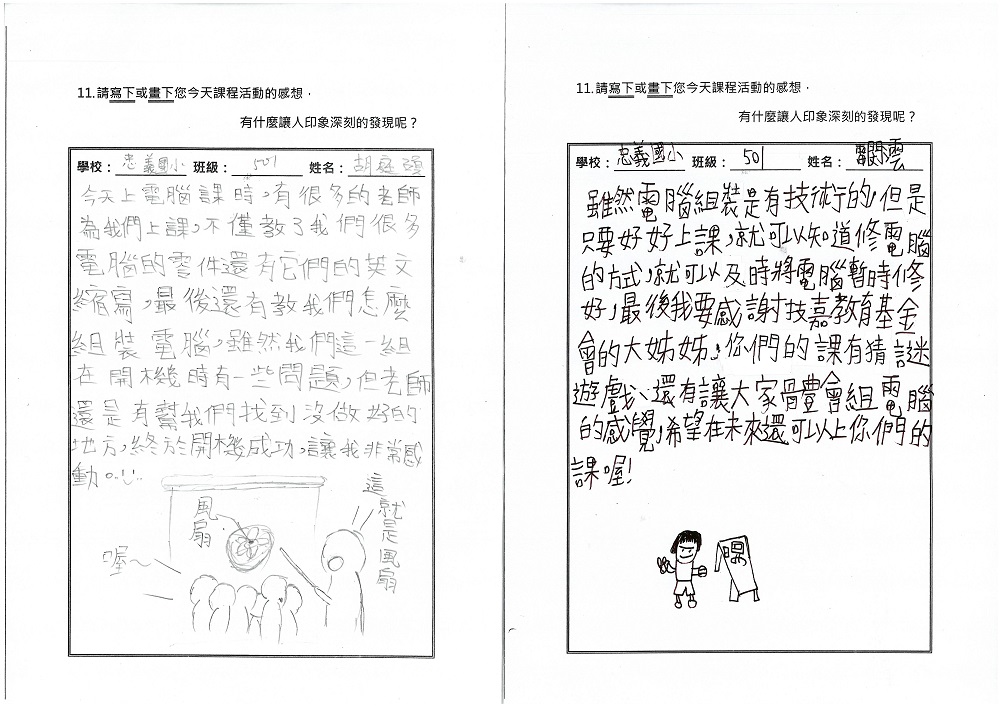 11.請寫下或畫下您今天課程活動的感想，
有什麼讓人印象深刻的發現呢？
學校：忠義國小 班級：501 姓名：胡庭碩
今天上電腦課時，有很多的老師
為我們上課，不僅教了我們很多
電腦的零件還有它們的英文
縮寫，最後還有教我們怎麼
組裝電腦，雖然我們這一組
在開機時有一些問題，但老師
還是有幫我們找到沒做好的
地方，終於開機成功，讓我非常感
動。
這就是風扇
風扇
喔～
11.請寫下或畫下您今天課程活動的感想，
有什麼讓人印象深刻的發現呢？
學校：忠義國小 班級：501 姓名：
雖然電腦組裝是有技術行的，但是
只要好好上課，就可以知道修電腦
的方式，就可以及時將電腦暫時修
好，最後我要感謝技嘉教育基金
會的大姊姊，你們的課有猜謎
遊戲、還有讓大家體會組電腦
的感覺，希望在未來還可以上你們的
課喔！